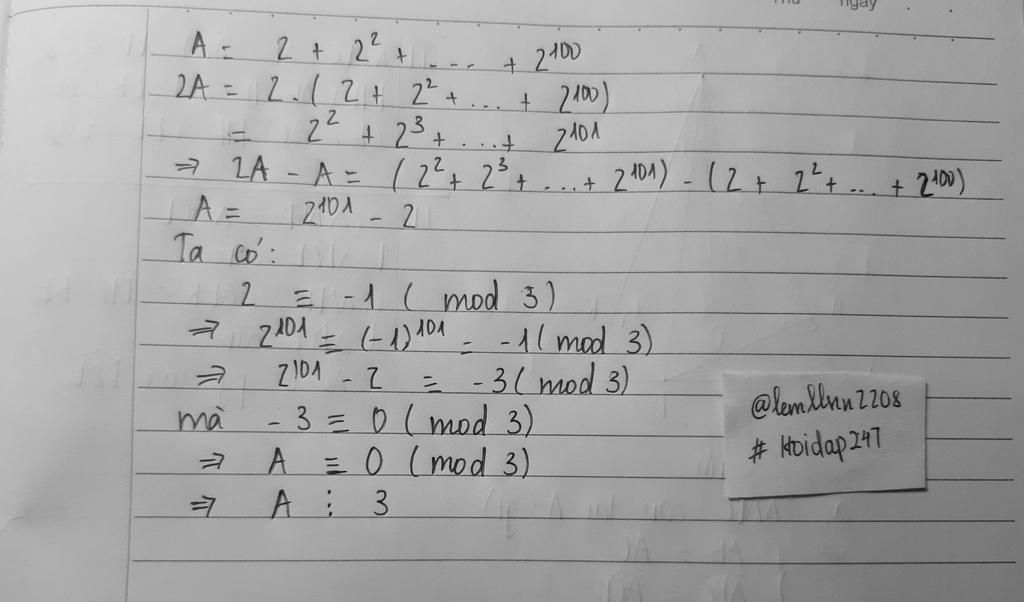 ngày
A = 2 + 2² + .... + 2¹⁰⁰
2A = 2.( 2 + 2² + ... + 2¹⁰⁰)
= 2² + 2³ + ...+ 2¹⁰¹
⇒ 2A - A = (2² + 2³ + ...+ 2¹⁰¹) - (2 + 2² + ... + 2¹⁰⁰)
A = 2¹⁰¹ - 2
Ta có:
2 ≡ -1 ( mod 3)
⇒ 2¹⁰¹ ≡ (-1)¹⁰¹ = -1( mod 3)
⇒ 2¹⁰¹ - 2 ≡ -3( mod 3)
mà - 3 ≡ 0 ( mod 3)
⇒ A ≡ 0 ( mod 3)
⇒ A ⋮ 3
@lemllnn2208
# Hoidap247